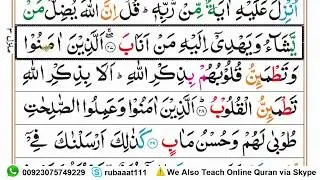 اُنْزِلَ عَلَيْهِ اٰيَةٌ مِّنْ رَّبِّهٖ ؕ قُلْ اِنَّ اللّٰهَ يُضِلُّ مَنْ
يَّشَآءُ وَيَهْدِيْۤ اِلَيْهِ مَنْ اَنَابَ ۖۚ ﴿۲۷﴾ اَلَّذِيْنَ اٰمَنُوْا
وَتَطْمَئِنُّ قُلُوْبُهُمْ بِذِكْرِ اللّٰهِ ؕ اَلَا بِذِكْرِ اللّٰهِ
تَطْمَئِنُّ الْقُلُوْبُ ؕ ﴿۲۸﴾ اَلَّذِيْنَ اٰمَنُوْا وَعَمِلُوا الصّٰلِحٰتِ
طُوْبٰى لَهُمْ وَحُسْنُ مَاٰبٍ ﴿۲۹﴾ كَذٰلِكَ اَرْسَلْنٰكَ فِيْۤ
00923075749229 rubaaat111 We Also Teach Online Quran via Skype